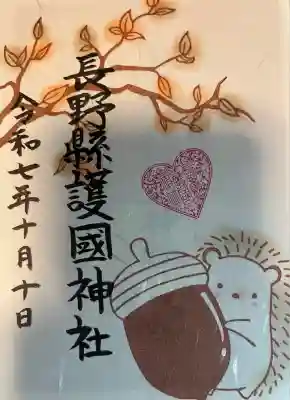 長野縣護國神社
令和七年十月十日